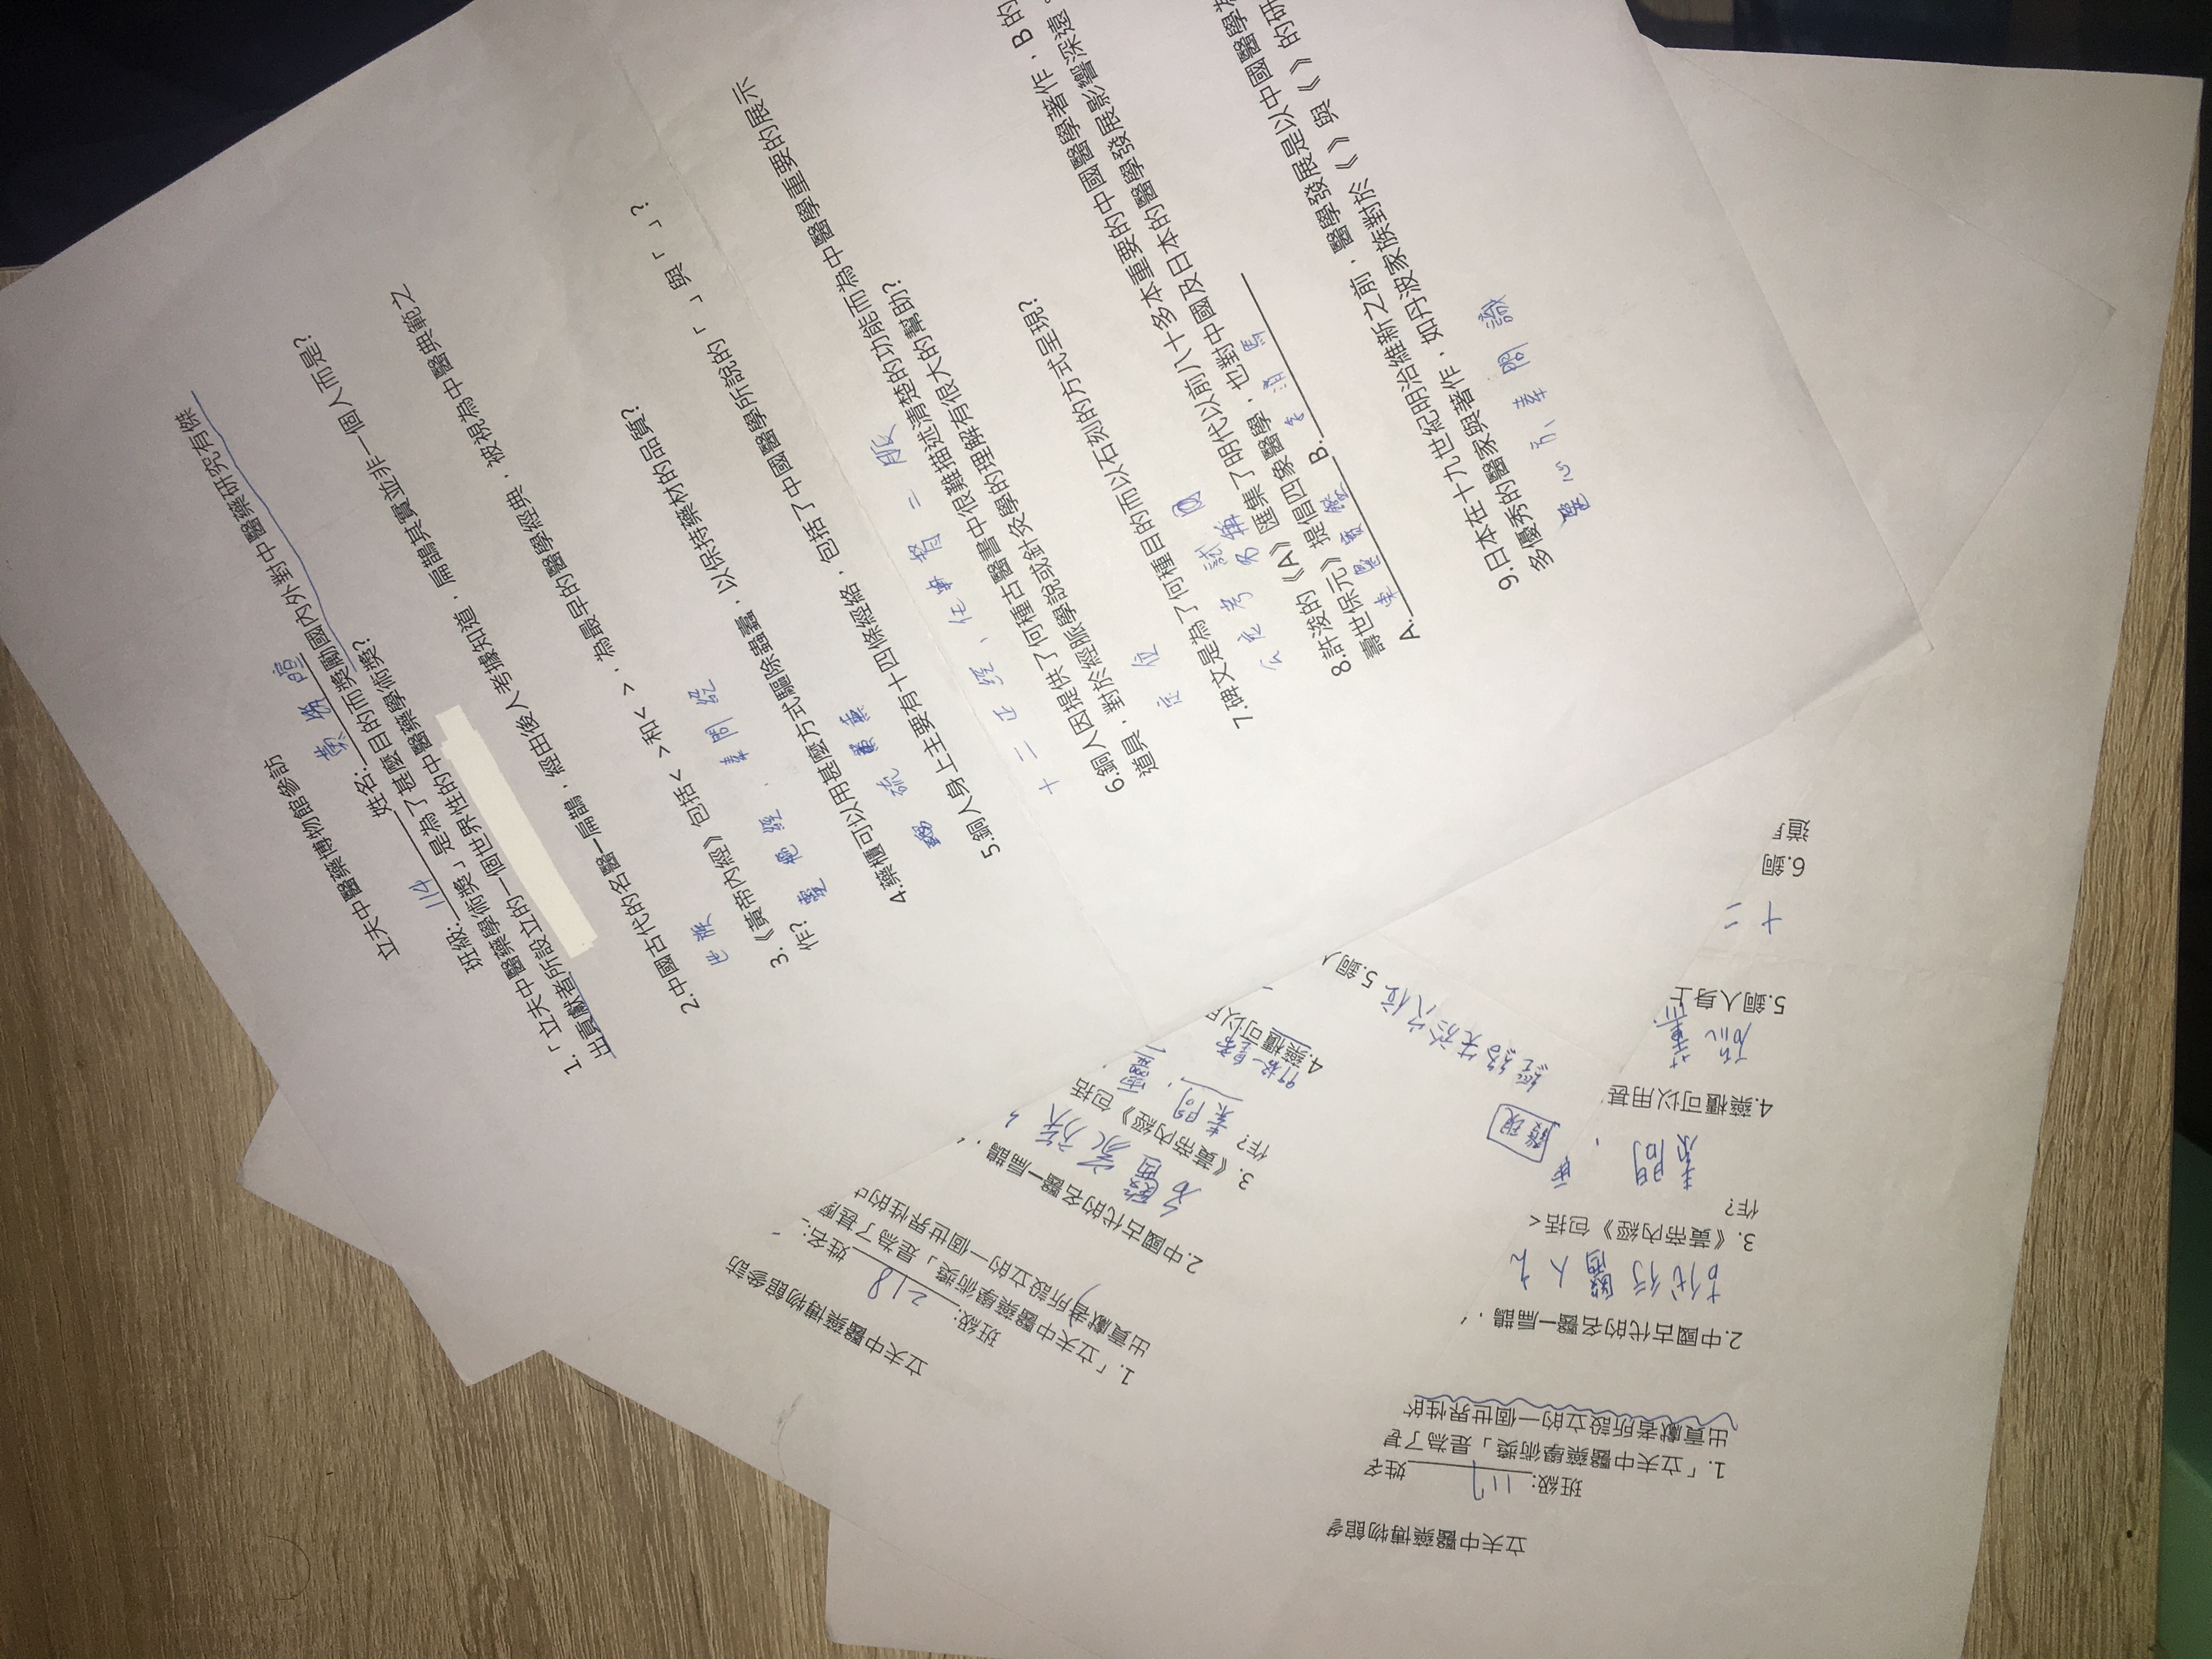 立夫中醫藥博物館參訪
班級: 114 姓名: 黃 暄
1.「立夫中醫藥學術獎」是為了甚麼目的而獎勵國內外對中醫藥研究有傑
出貢獻者所設立的一個世界性的中醫藥學術獎?
2.中國古代的名醫—扁鵲，經由後人考據知道，扁鵲其實並非一個人而是?
世族
3.《黃帝內經》包括< >和< >，為最早的醫學經典，被視為中醫典範之
作?
靈樞經、素問經
4.藥櫃可以用甚麼方式驅除蟲蠹，以保持藥材的品質?
硫黃熏
5.銅人身上主要有十四條經絡，包括了中國醫學所說的「 」與「 」?
十二正經、任督二脈
6.銅人因提供了何種古醫書中很難描述清楚的功能而為中醫學重要的展示
道具，對於經脈學說或針灸學的理解有很大的幫助?
定位
7.碑文是為了何種目的而以石刻的方式呈現?
公定考試
名稱
8.許浚的《A》匯集了明代以前八十多本重要的中國醫學著作，B 的
壽世保元》提倡四象醫學，也對中國及日本的醫學發展影響深遠。
A. 東醫寶鑑 B. 李濟馬
9.日本在十九世紀明治維新之前，醫學發展是以中國醫學為
多優秀的醫家與著作，如丹波家族對於《 》與《 》的研
醫心方、素問識
立夫中醫藥博物館參訪
班級: 218 姓名:
1.「立夫中醫藥學術獎」是為了甚麼
出貢獻者所設立的一個世界性的
2.中國古代的名醫—扁鵲，
名醫家族
3.《黃帝內經》包括
作? 素問、靈
4.藥櫃可以
經絡 於穴位
5.銅
立夫中醫藥博物館
班級: 117 姓名
1.「立夫中醫藥學術獎」是為了甚
出貢獻者所設立的一個世界性的
2.中國古代的名醫—扁鵲，
古代行醫人
3.《黃帝內經》包括<
作?
素問、
發現
4.藥櫃可以用甚
硫薰
5.銅人身上
十二
6.銅
道